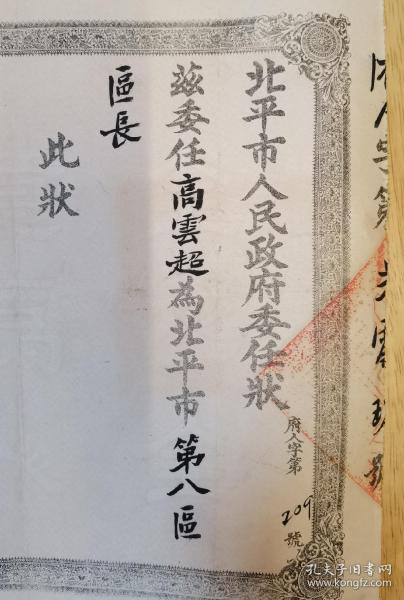 府人字第
北平市人民政府委任狀
府人字第209號
茲委任高雲超為北平市第八區
區長
此狀
孔夫子旧书网
www.kongfz.com